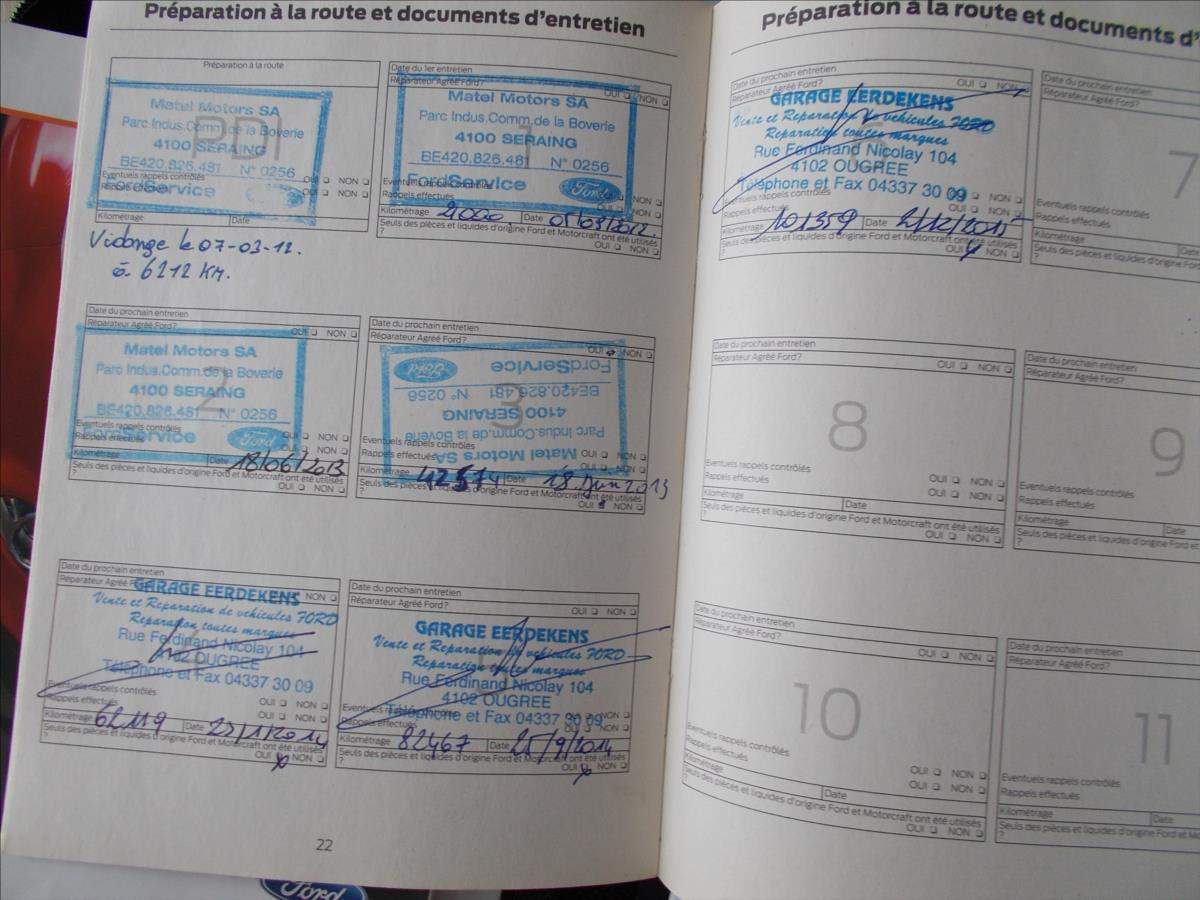 Préparation à la route et documents d'entretien
Préparation à la route
PDI
Matel Motors SA
Parc Indus.Comm.de la Boverie
4100 SERAING
BE420.826.481 N° 0256
FordService
Eventuels rappels contrôlés OUI NON
Rappels effectués OUI NON
Kilométrage Date
Vidange le 07-03-12.
à 6212 KM.
Date du 1er entretien
Réparateur Agréé Ford? OUI NON
1
Matel Motors SA
Parc Indus.Comm.de la Boverie
4100 SERAING
BE420.826.481 N° 0256
FordService Ford
Eventuels rappels contrôlés
Rappels effectués OUI NON
Kilométrage Date
Seuls des pièces et liquides d'origine Ford et Motorcraft ont été utilisés
? OUI NON
Date du prochain entretien
Réparateur Agréé Ford? OUI NON
2
Matel Motors SA
Parc Indus.Comm.de la Boverie
4100 SERAING
BE420.826.481 N° 0256
FordService Ford
Eventuels rappels contrôlés OUI NON
Rappels effectués OUI NON
Kilométrage Date 18/06/2013
Seuls des pièces et liquides d'origine Ford et Motorcraft ont été utilisés
? OUI NON
Date du prochain entretien
Réparateur Agréé Ford? OUI NON
3
Matel Motors SA
Parc Indus.Comm.de la Boverie
4100 SERAING
BE420.826.481 N° 0256
FordService Ford
Eventuels rappels contrôlés OUI NON
Rappels effectués OUI NON
Kilométrage Date 18 Juin 2013
Seuls des pièces et liquides d'origine Ford et Motorcraft ont été utilisés
? OUI NON
Date du prochain entretien
Réparateur Agréé NON
GARAGE EERDEKENS
Vente et Reparation de vehicules FORD
Reparation toutes marques
Rue Ferdinand Nicolay 104
4102 OUGREE
Téléphone et Fax 04337 30 09
Eventuels rappels contrôlés OUI NON
Rappels effectués OUI NON
Kilométrage 62119 Date
Seuls des pièces et liquides d'origine Ford et Motorcraft ont été utilisés
? OUI NON
Date du prochain entretien
Réparateur Agréé Ford? OUI NON
GARAGE EERDEKENS
Vente et Reparation de vehicules FORD
Reparation toutes marques
Rue Ferdinand Nicolay 104
4102 OUGREE
Téléphone et Fax 04337 30 09
Eventuels rappels NON
Rappels effectués OUI NON
Kilométrage 82467 Date 25/9/2014
Seuls des pièces et liquides d'origine Ford et Motorcraft ont été utilisés
? OUI NON
22
Ford
Préparation à la route et documents d'
Date du prochain entretien
Réparateur Agréé Ford? OUI NON
GARAGE EERDEKENS
Vente et Reparation de vehicules FORD
Reparation toutes marques
Rue Ferdinand Nicolay 104
4102 OUGREE
Téléphone et Fax 04337 30 09
Eventuels rappels contrôlés OUI NON
Rappels effectués OUI NON
Kilométrage 101359 Date 2/12/2015
Seuls des pièces et liquides d'origine Ford et Motorcraft ont été utilisés
? OUI NON
Date du prochain entretien
Réparateur Agréé Ford?
7
Eventuels rappels contrôlés
Rappels effectués
Kilométrage Date
Seuls des pièces et liquides d'origine Ford et
?
Date du prochain entretien
Réparateur Agréé Ford? OUI NON
8
Eventuels rappels contrôlés
Rappels effectués OUI NON
OUI NON
Kilométrage Date
Seuls des pièces et liquides d'origine Ford et Motorcraft ont été utilisés
? OUI NON
Date du prochain entretien
Réparateur Agréé Ford?
9
Eventuels rappels contrôlés
Rappels effectués
Kilométrage Date
Seuls des pièces et liquides d'origine Ford et
?
Date du prochain entretien
Réparateur Agréé Ford? OUI NON
10
Eventuels rappels contrôlés
Rappels effectués OUI NON
OUI NON
Kilométrage Date
Seuls des pièces et liquides d'origine Ford et Motorcraft ont été utilisés
? OUI NON
Date du prochain entretien
Réparateur Agréé Ford?
11
Eventuels rappels contrôlés
Rappels effectués
Kilométrage Date
Seuls des pièces et liquides d'origine Ford et
?